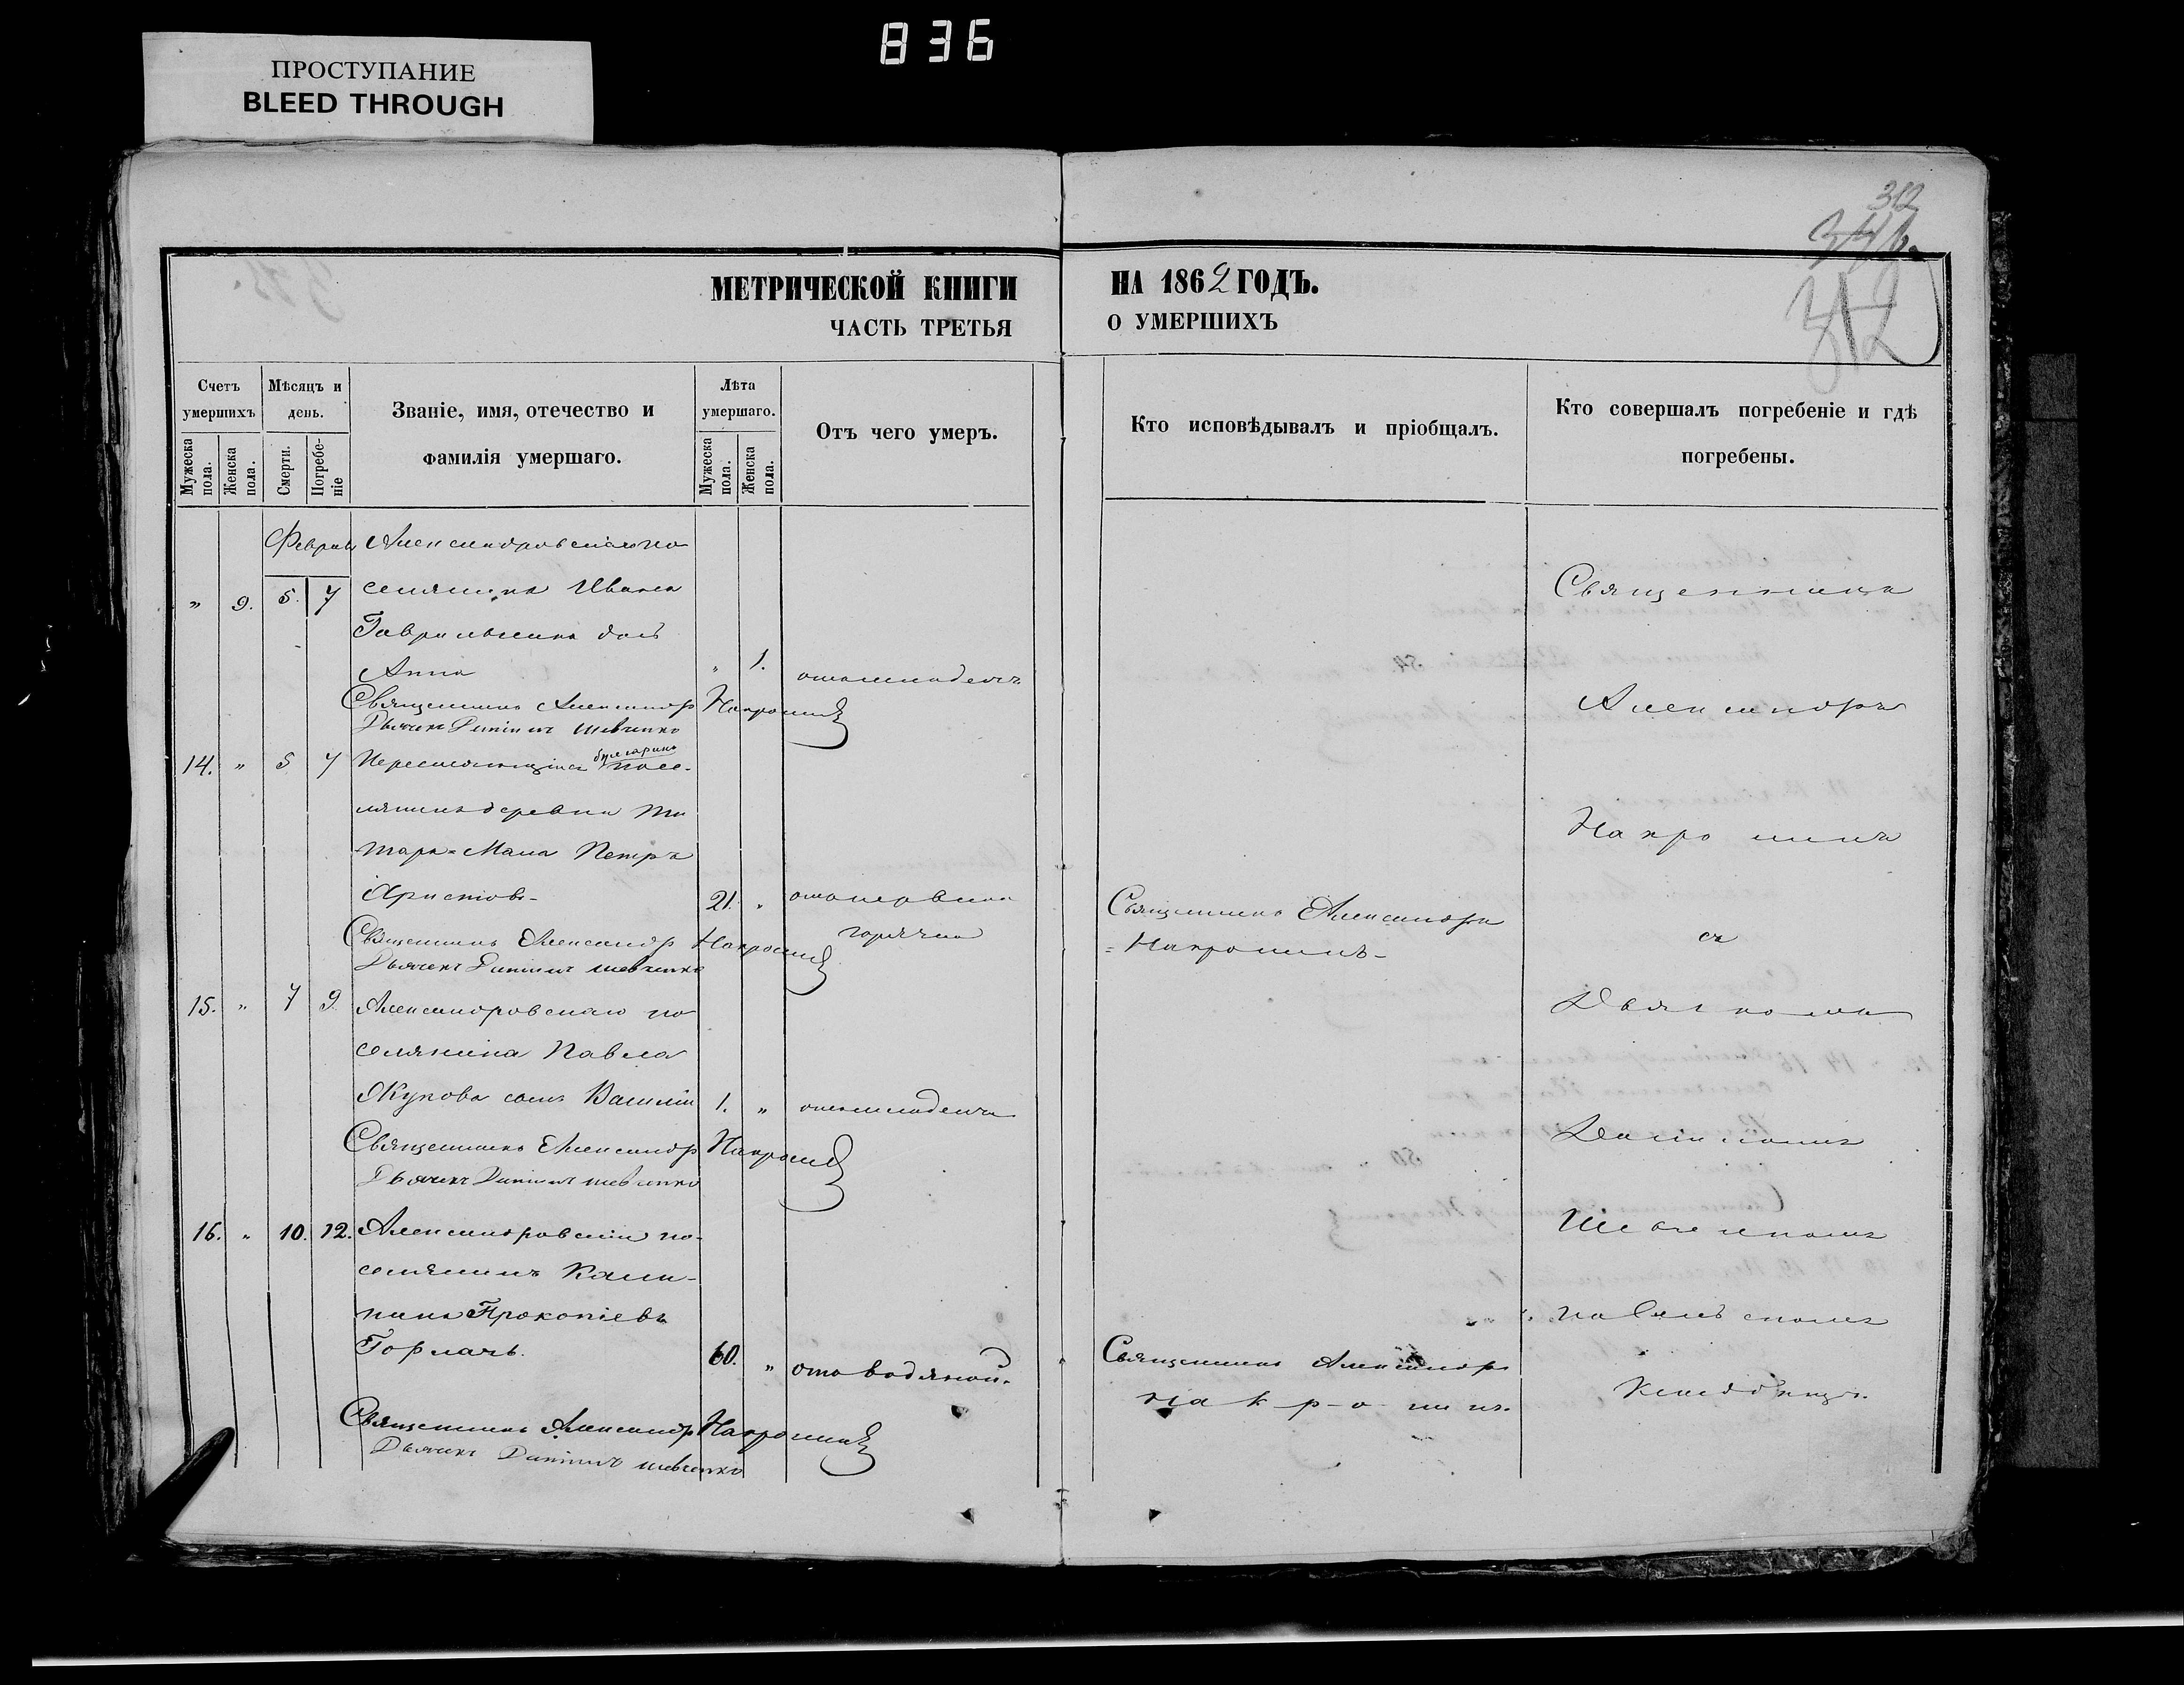 836
ПРОСТУПАНИЕ
BLEED THROUGH
312
МЕТРИЧЕСКОЙ КНИГИ
НА 1862 ГОДЪ.
ЧАСТЬ ТРЕТЬЯ
О УМЕРШИХЪ
312
Счетъ умершихъ
Мужеска пола.
Женска пола.
Мѣсяцъ и день.
Смерти.
Погребеніе
Званіе, имя, отечество и
фамилія умершаго.
Лѣта умершаго.
Мужеска пола.
Женска пола.
Отъ чего умеръ.
Кто исповѣдывалъ и пріобщалъ.
Кто совершалъ погребеніе и гдѣ
погребены.
Александровскаго по
" 9. 5. 7 селянина Ивана
дочь
Анна " 1. отъ младенч.
Священникъ Александр Накрошинъ
Дьячекъ Даніилъ Шевченко
14. " 5 7 болгаринъ посе-
лянинъ деревни
Петръ
Христовъ- 21. "
горячки
Священникъ Александр Накрошинъ
Дьячекъ Даніилъ Шевченко
15. " 7 9. Александровскаго по
селянина Павла
сынъ Василій 1. " отъ младенч
Священникъ Александр Накрошинъ
Дьячекъ Даніилъ Шевченко
16. " 10. 12. Александровскій по-
селянинъ
Прокопіевъ
60. " отъ водяной.
Священникъ Александр Накрошинъ
Дьячекъ Даніилъ Шевченко
Священникъ Александръ
Накрошинъ-
Священникъ Александръ
Накрошинъ.
Священникъ
Александръ
Накрошинъ
съ
Дьячкомъ
Даніиломъ
Шевченкомъ
на сельскомъ
кладбищѣ.